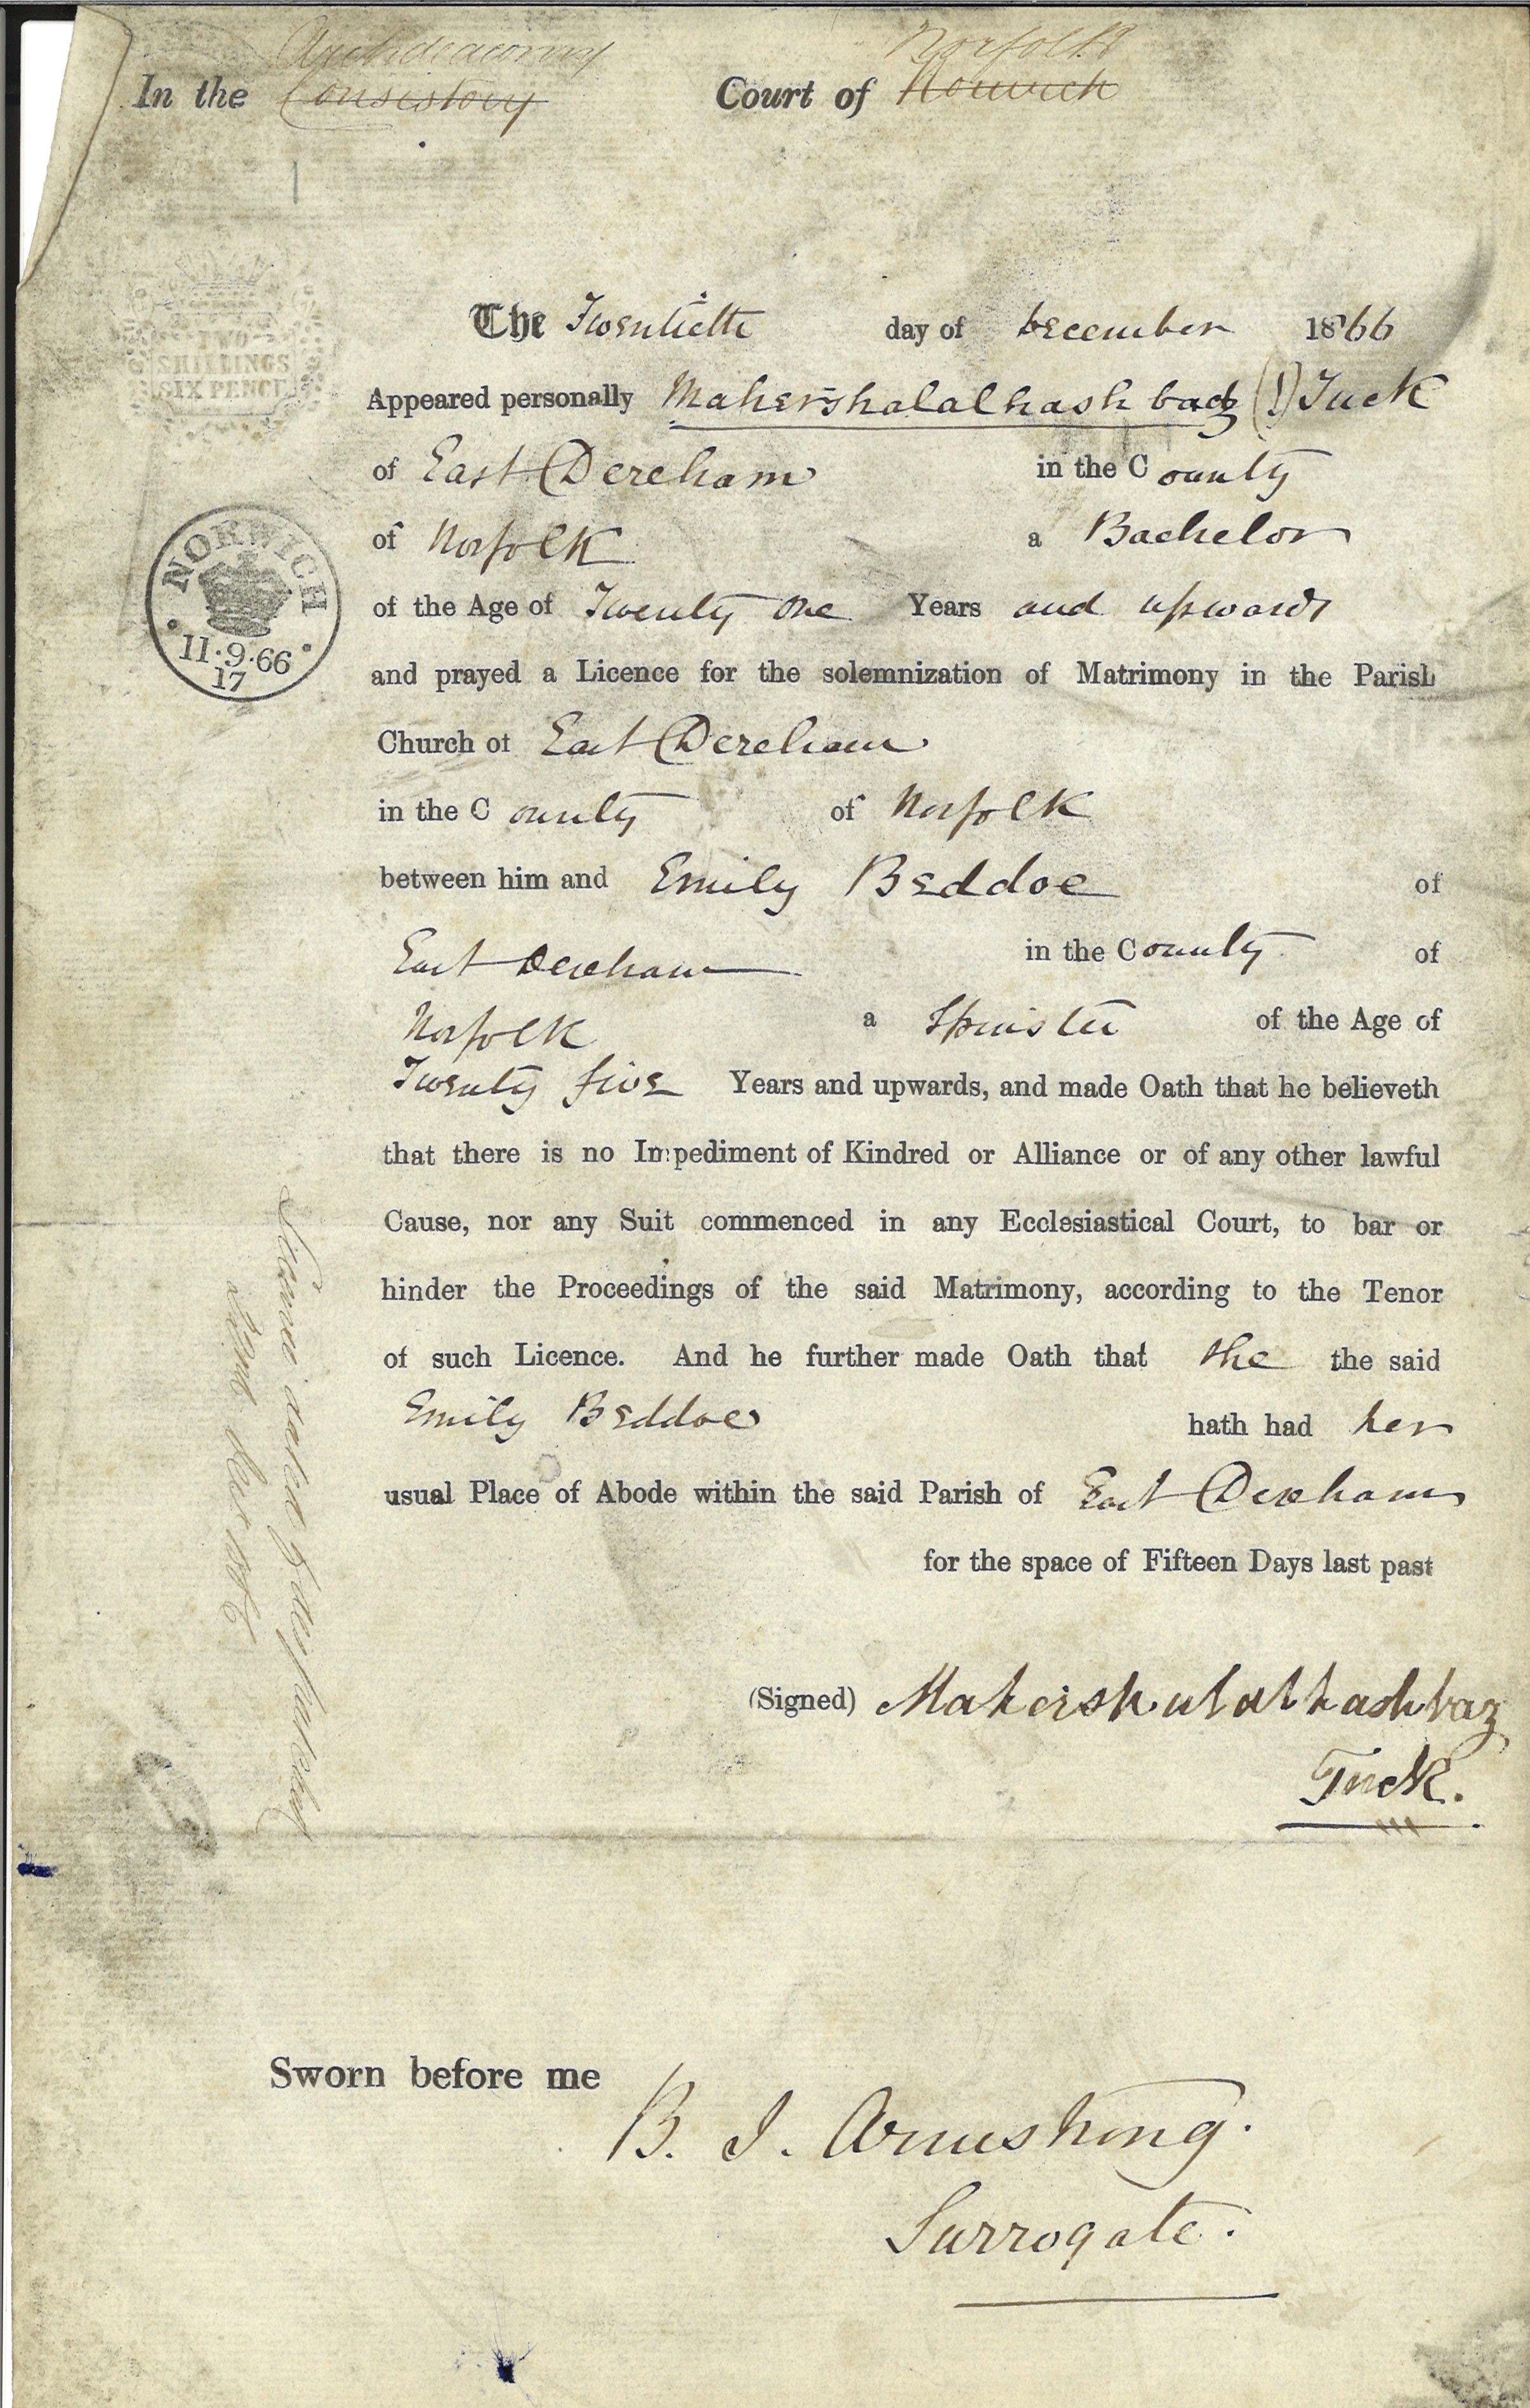 Archdeaconry Norfolk
In the Consistory Court of Norwich
TWO
SHILLINGS
SIX PENCE
The Twentieth day of December 1866
Appeared personally Mahershalalhashbaz (!) Tuck
of East Dereham in the County
of Norfolk a Bachelor
NORWICH
11·9·66
17
of the Age of Twenty one Years and upwards
and prayed a Licence for the solemnization of Matrimony in the Parish
Church of East Dereham
in the County of Norfolk
between him and Emily Beddoe of
East Dereham in the County of
Norfolk a Spinster of the Age of
Twenty five Years and upwards, and made Oath that he believeth
that there is no Impediment of Kindred or Alliance or of any other lawful
Cause, nor any Suit commenced in any Ecclesiastical Court, to bar or
hinder the Proceedings of the said Matrimony, according to the Tenor
of such Licence. And he further made Oath that she the said
Emily Beddoe hath had her
usual Place of Abode within the said Parish of East Dereham
for the space of Fifteen Days last past
(Signed) Mahershalalhashbaz
Tuck.
Sworn before me
B. J. Armstrong.
Surrogate.